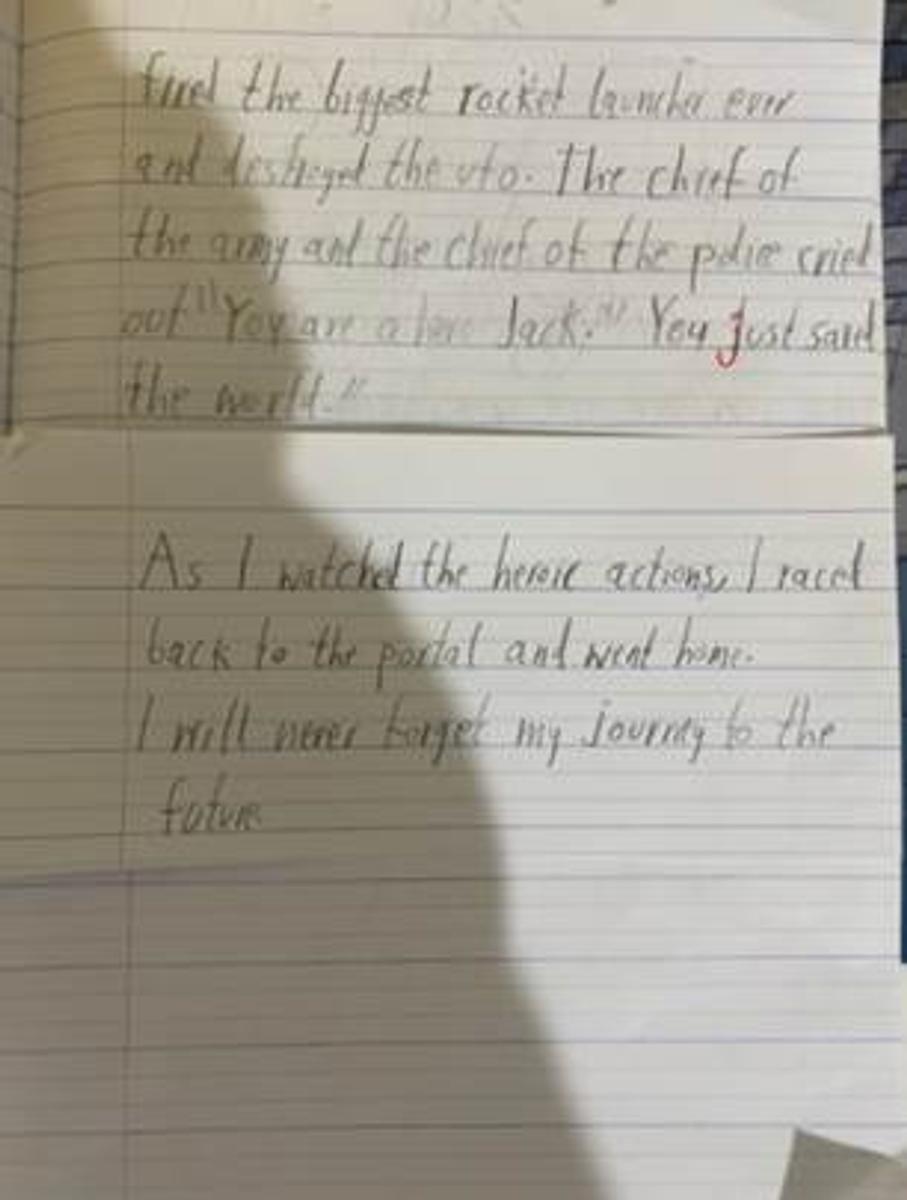 fired the biggest rocket launcher ever
and destroyed the ufo. The chief of
the army and the chief of the police cried
out "You are a hero Jack." You just saved
the world."
As I watched the heroic actions, I raced
back to the portal and went home.
I will never forget my journey to the
future